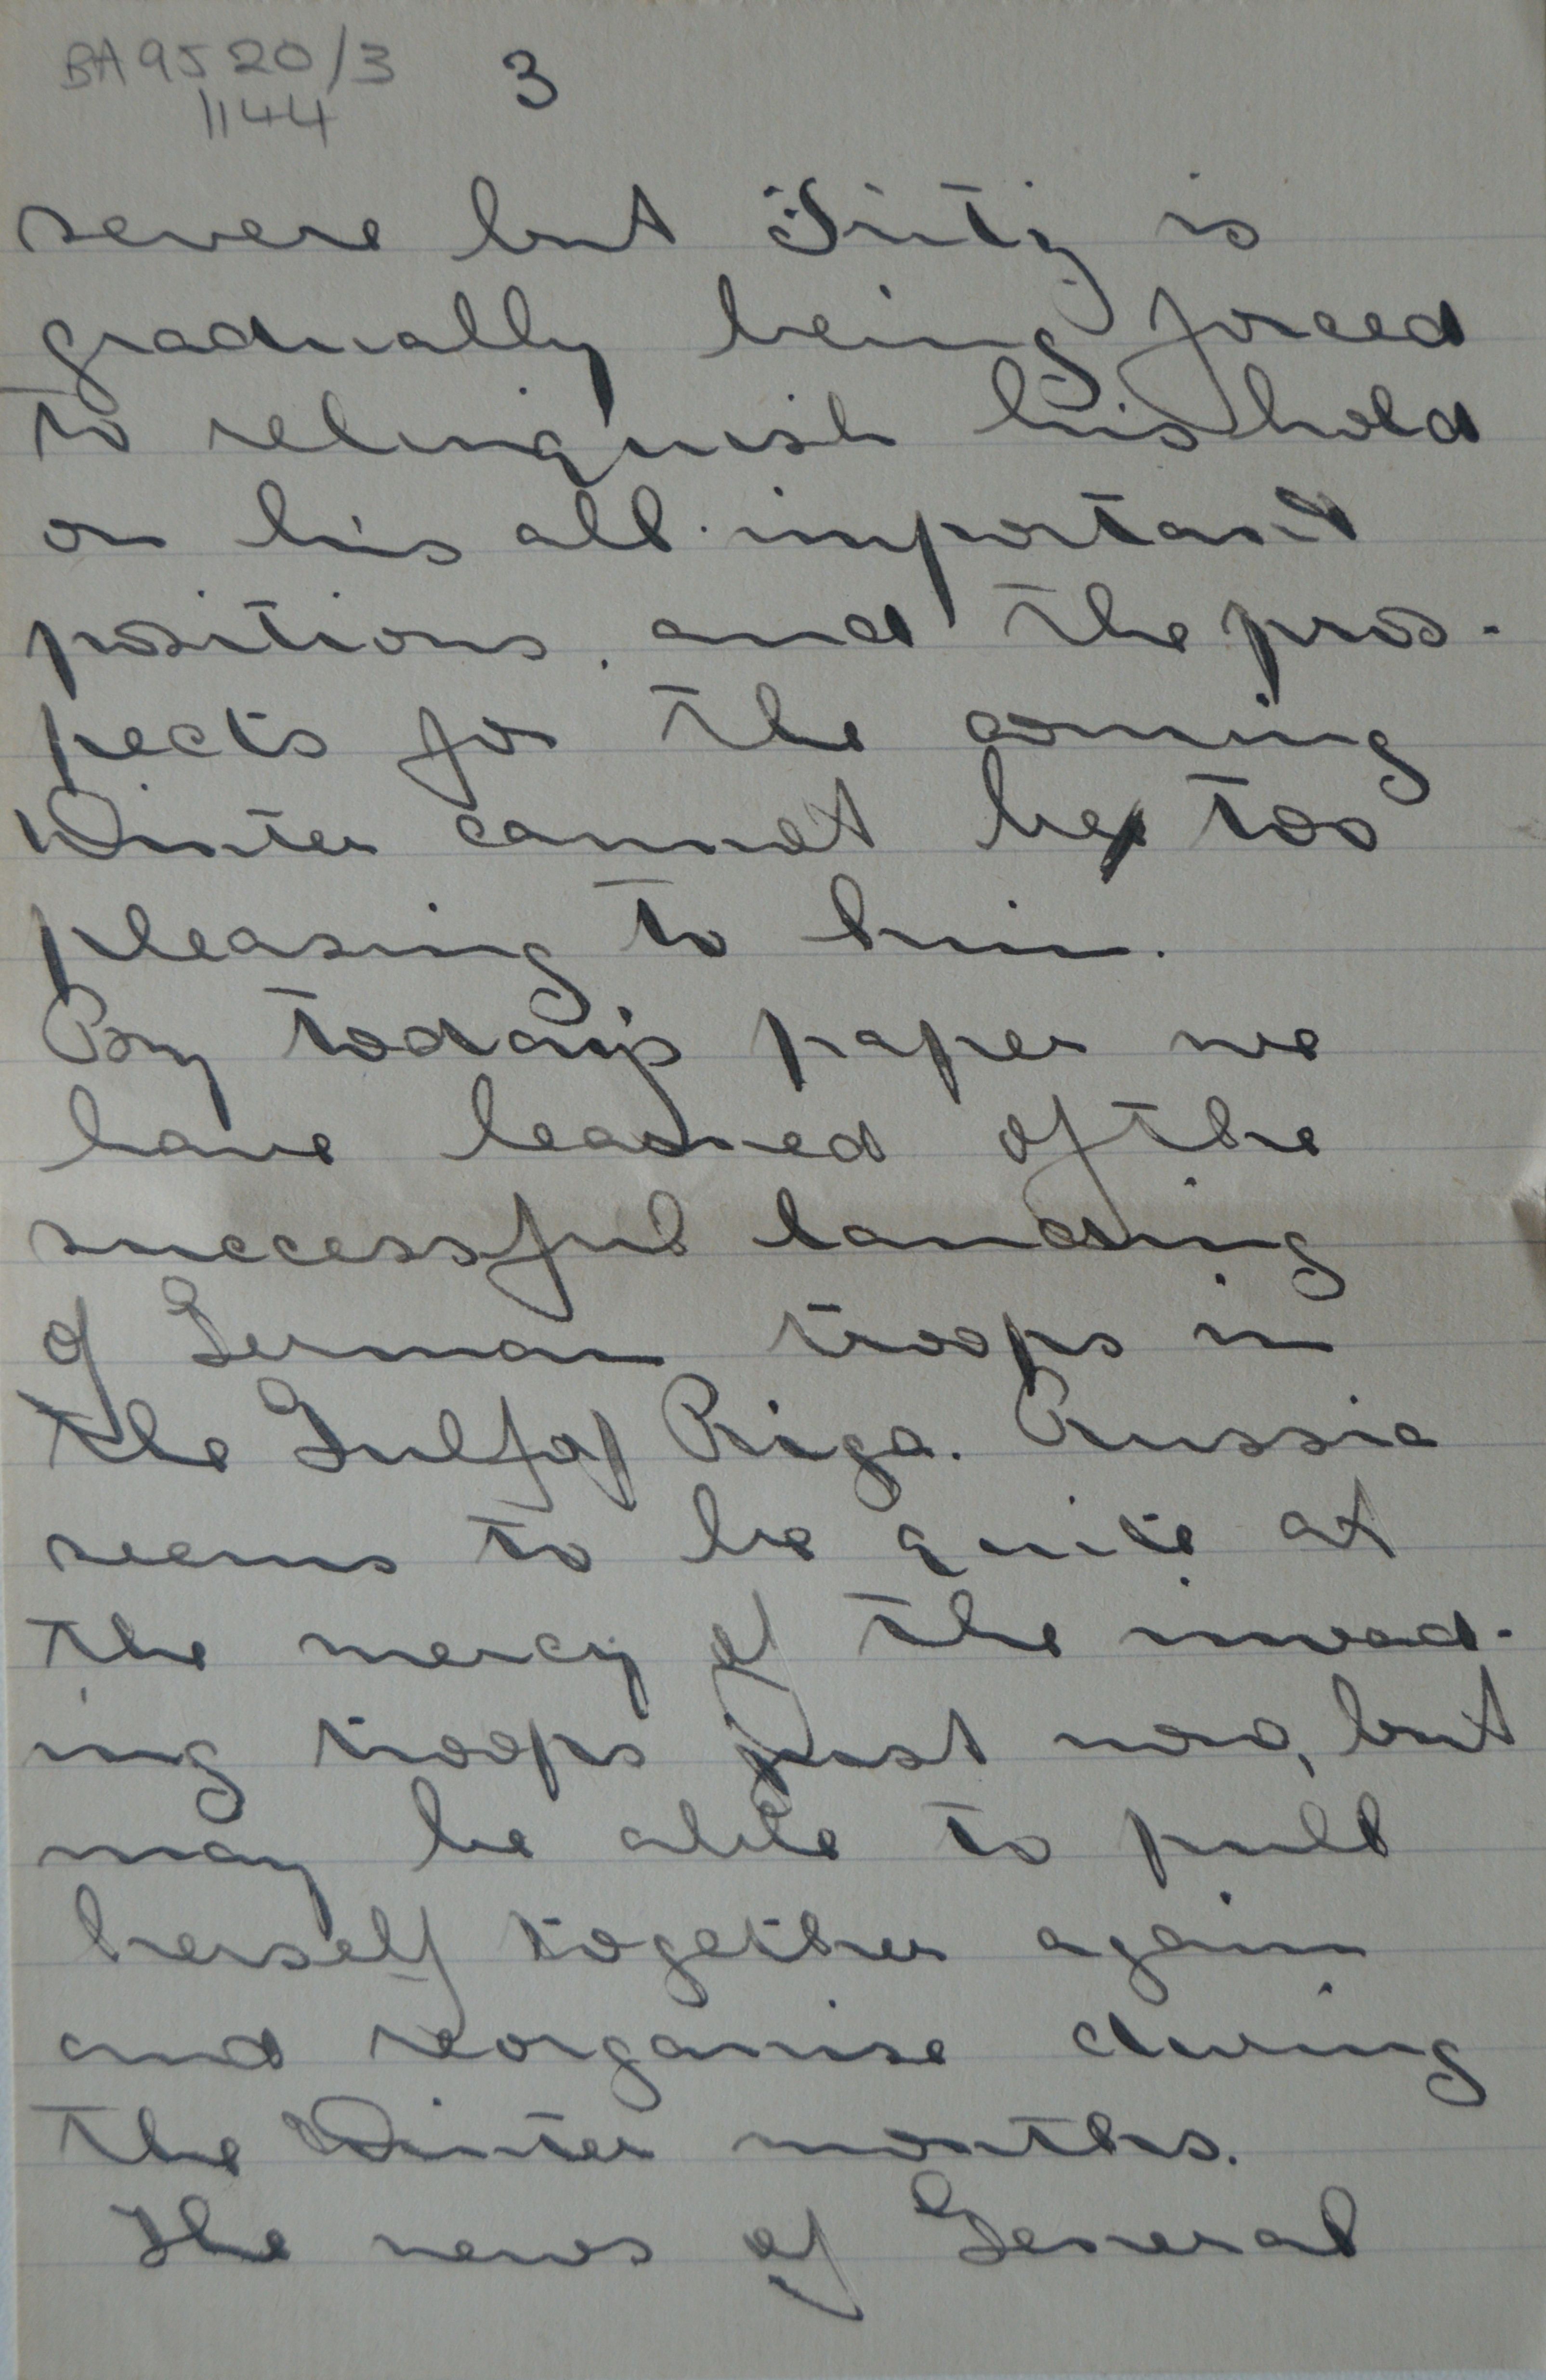 BA9520/3 3
1144
severe but Fritz is
gradually being forced
to relinquish his hold
on his all-important
positions, and the pros-
pects for the coming
Winter cannot be too
pleasing to him.
By today's paper we
have learned of the
successful landing
of German troops in
the Gulf of Riga. Russia
seems to be quite at
the mercy of the invad-
ing troops just now, but
may be able to pull
herself together again
and reorganise during
the Winter months.
The news of General